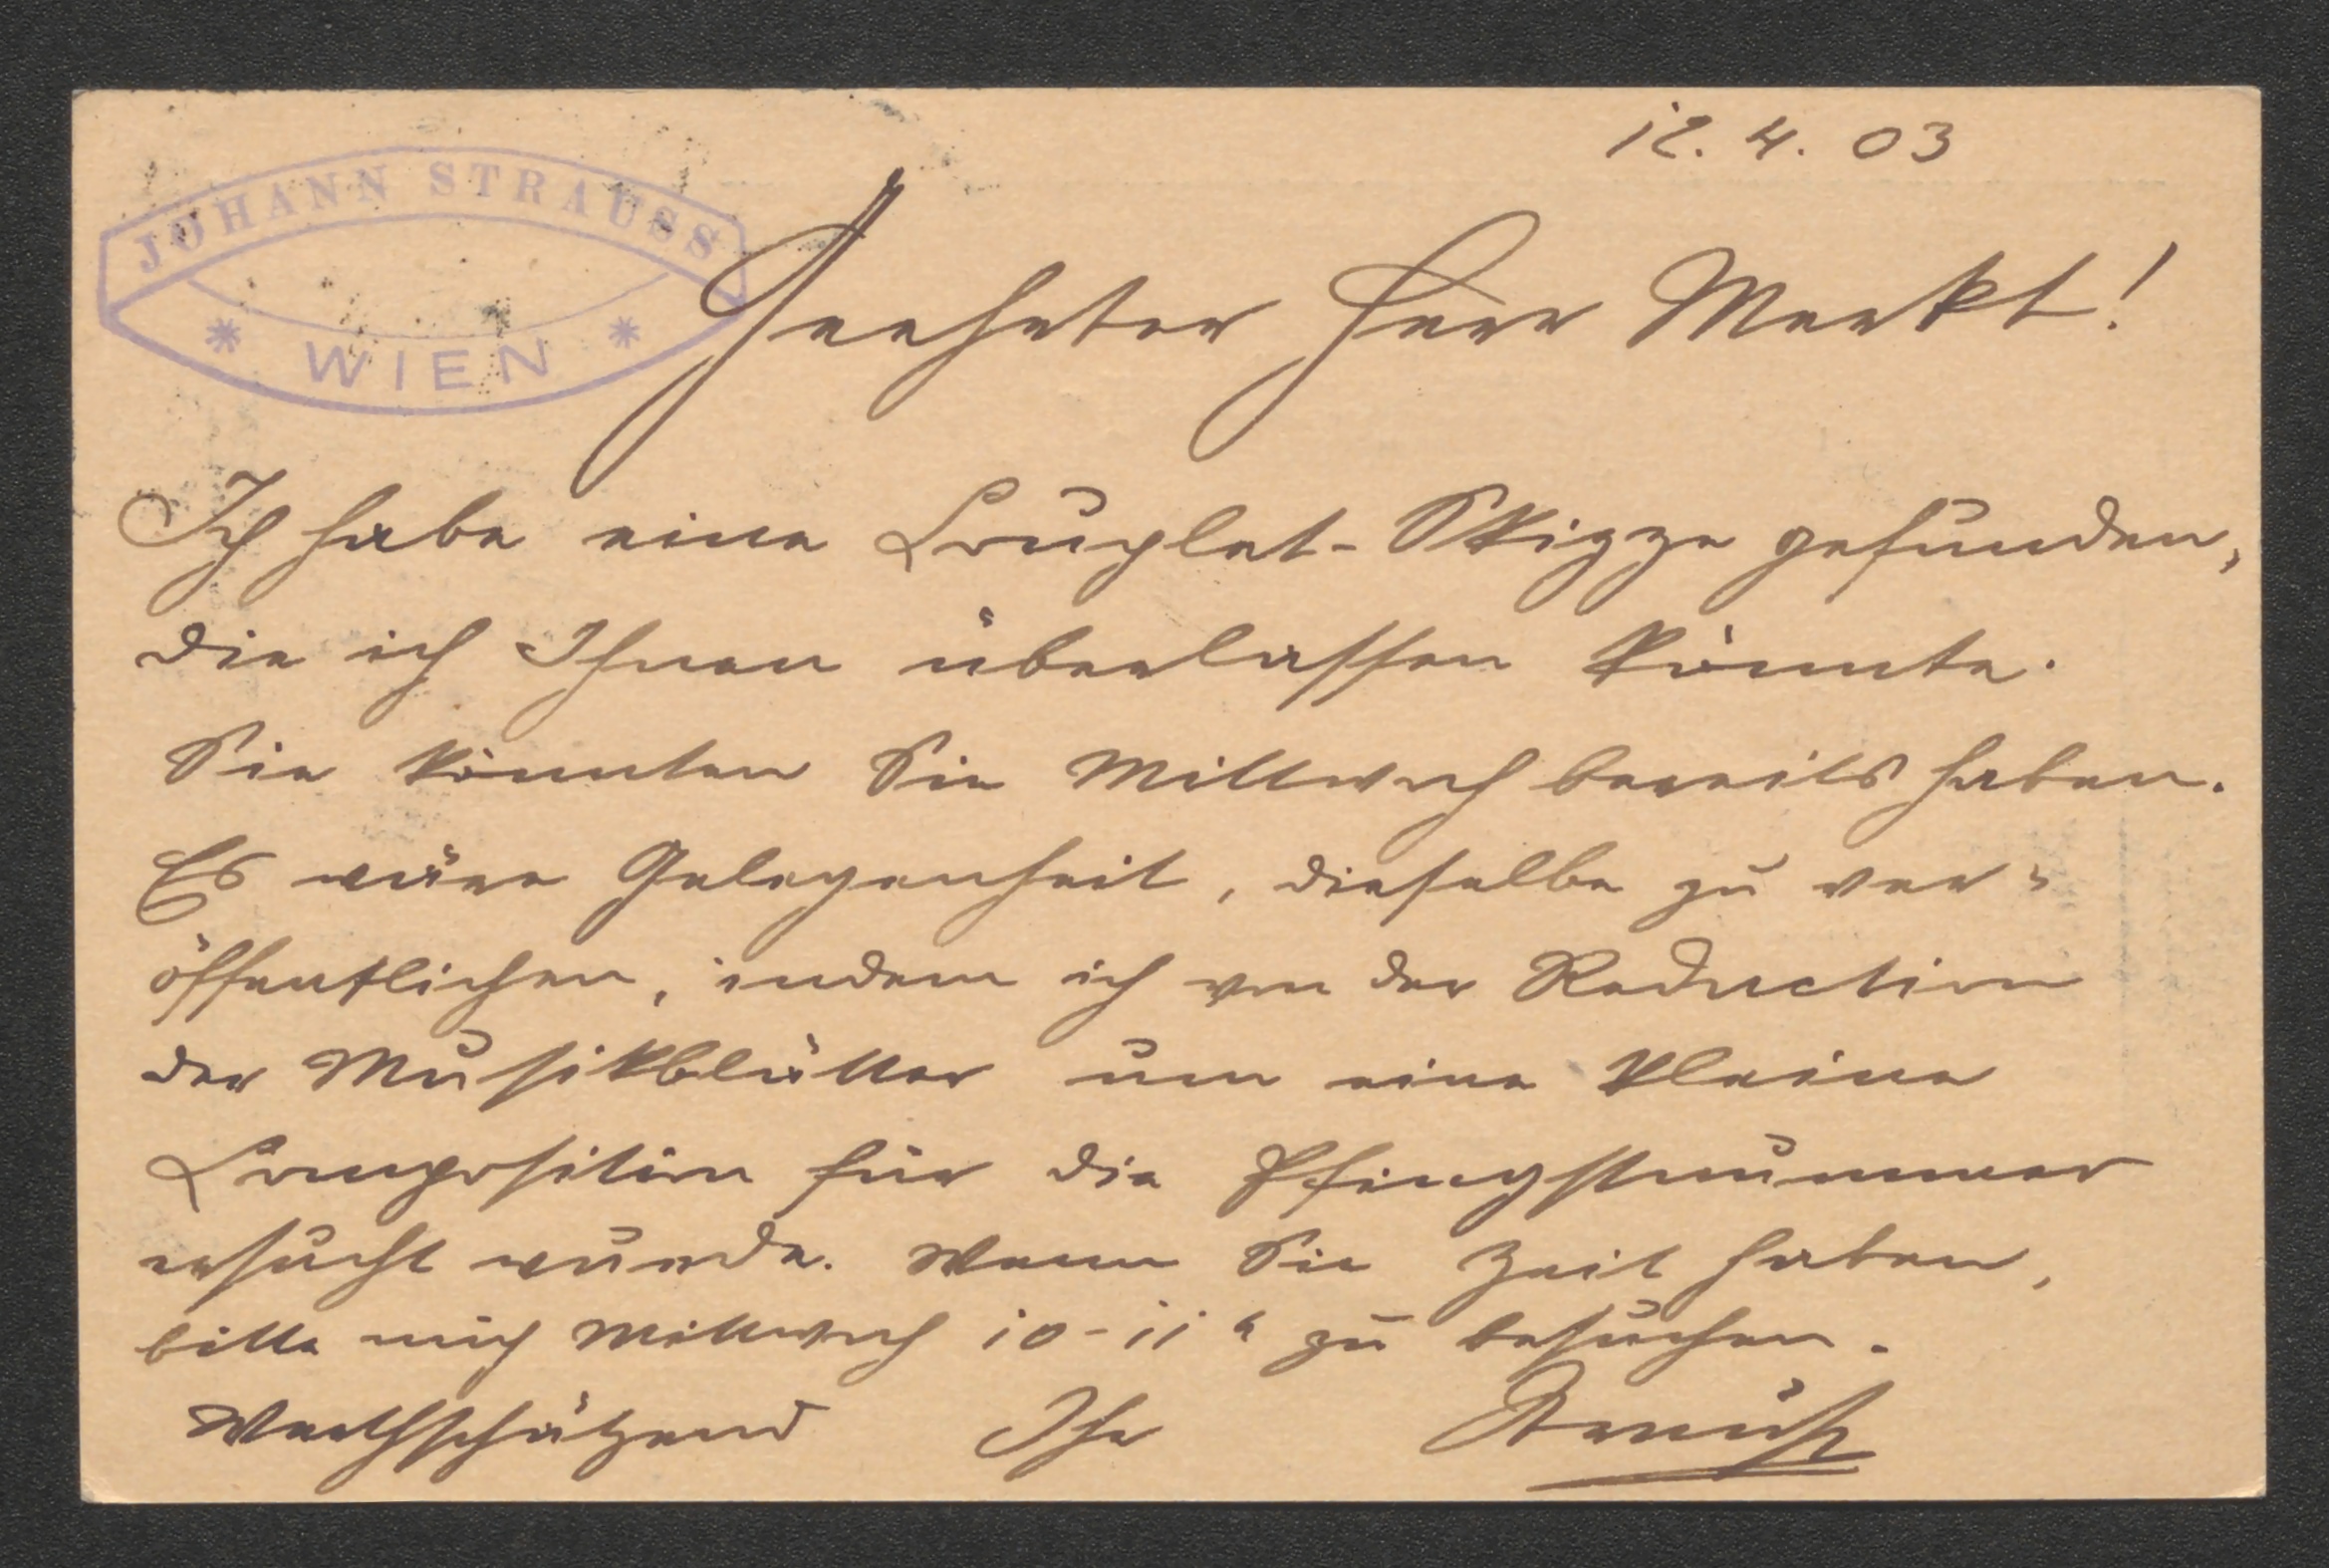 12. 4. 03
JOHANN STRAUSS
* WIEN *
Geehrter Herr Merkt!
Ich habe eine Couplet-Skizze gefunden,
die ich Ihnen überlassen könnte.
Sie könnten Sie Mittwoch bereits haben.
Es wäre Gelegenheit, dieselbe zu ver-
öffentlichen, indem ich von der Reduction
der Musikblätter um eine kleine
Composition für die Pfingstnummer
ersucht wurde. Wenn Sie Zeit haben,
bitte mich Mittwoch 10-11 h zu besuchen.
Werthschätzend Ihr Strauß